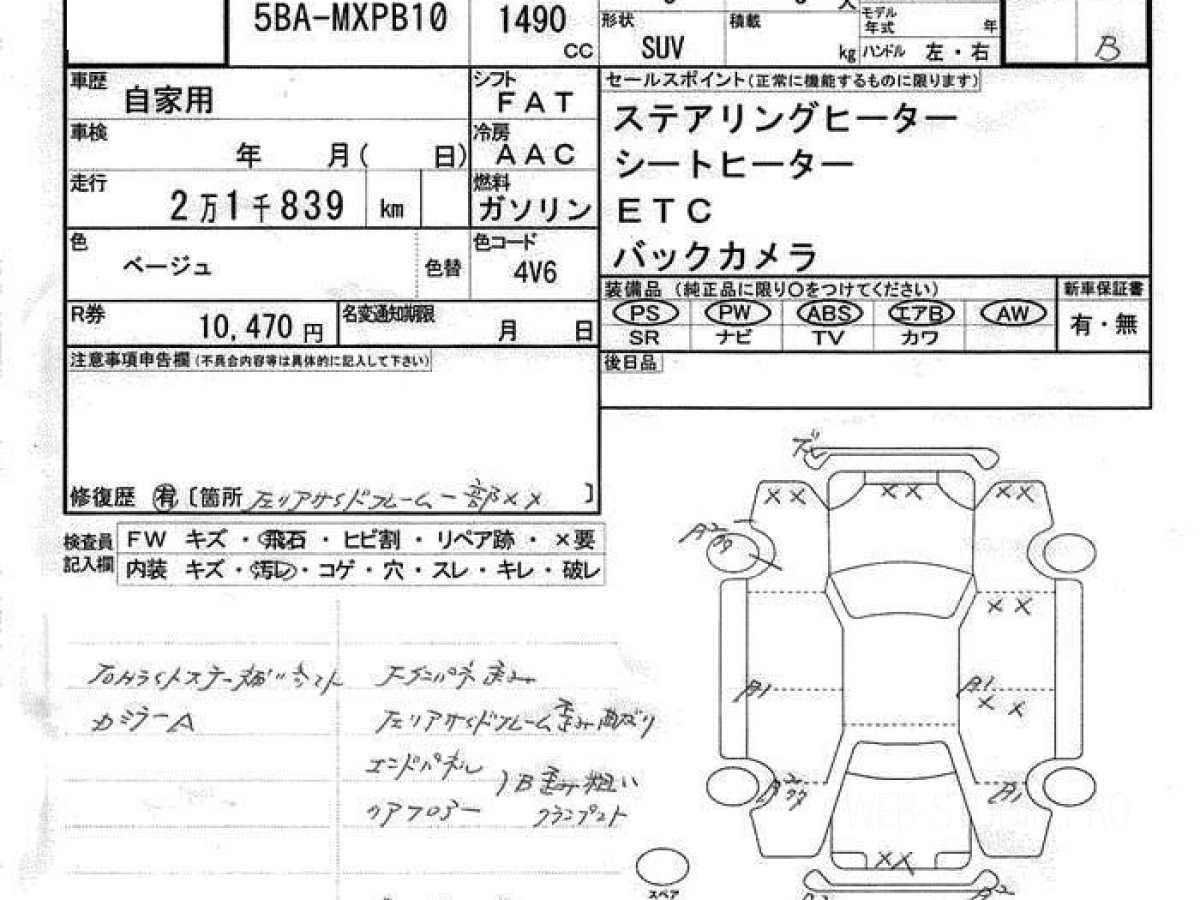 5BA-MXPB10
1490
CC
形状
SUV
積載
kg
人
モデル
年式
年
ハンドル 左・右
B
車歴
自家用
シフト
FAT
車検
年 月( 日)
冷房
AAC
走行
2万1千839 km
燃料
ガソリン
色
ベージュ
色替
色コード
4V6
R券
10,470 円
名変通知期限
月 日
セールスポイント(正常に機能するものに限ります)
ステアリングヒーター
シートヒーター
ETC
バックカメラ
装備品 (純正品に限り○をつけてください)
新車保証書
PS PW ABS エアB AW
有・無
SR ナビ TV カワ
後日品
注意事項申告欄(不具合内容等は具体的に記入して下さい)
修復歴 有 〔箇所 左リアサイドフレーム一部××〕
検査員
記入欄
FW キズ・飛石・ヒビ割・リペア跡・×要
内装 キズ・汚レ・コゲ・穴・スレ・キレ・破レ
カミラーA
左リアサイドフレーム歪み
エンドパネル
リアフロアー
歪み粗い
××
××
××
××
A1
A1
××
A1
××
スペア
WEB-STUDIO PRO